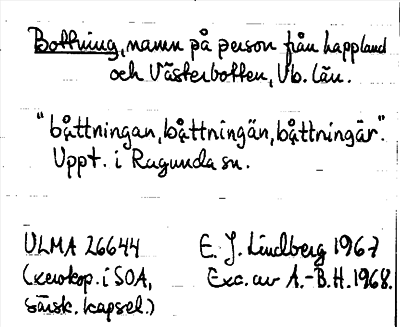 Bottning, namn på person från Lappland
och Västerbotten, Vb. län.
"båttningan, båttningän, båttningär".
Uppt. i Ragunda sn.
ULMA 26644 E. J. Lindberg 1967
(xerokop. i SOA, Exc. av A.-B.H. 1968.
särsk. kapsel.)